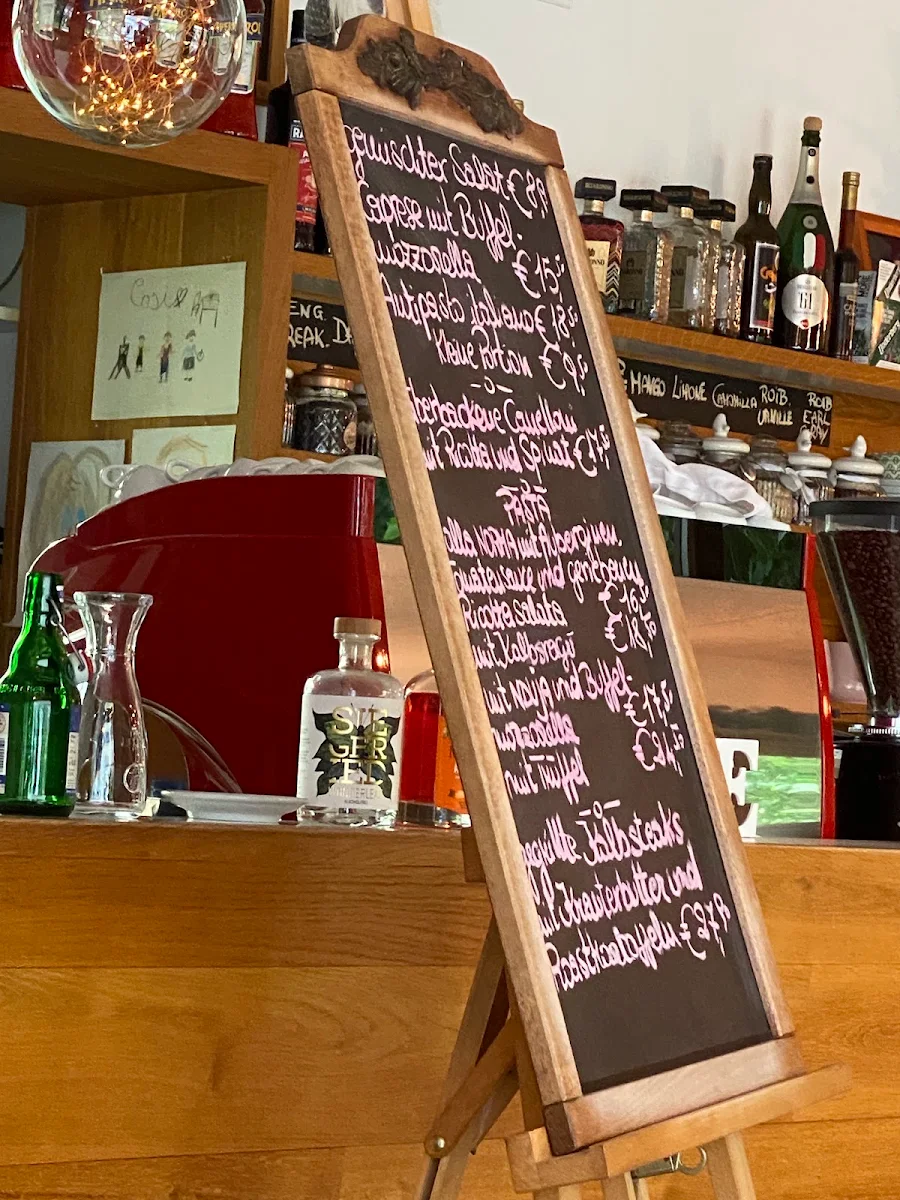 gemischter Salat € 8,9
Caprese mit Büffel-
mozzarella € 15,5
Antipasto italiano € 18,5
kleine Portion € 9,5
überbackene Canelloni
mit Ricotta und Spinat € 17,5
PASTA
alla NORMA mit Auberginen,
Tomatensauce und geriebenen
Ricotta salata € 16,5
mit Kalbsragù € 18,5
mit NDUJA und Büffel-
mozzarella € 17,5
mit Trüffel € 24,5
gegrillte Kalbsteaks
mit Kräuterbutter und
Röstkartoffeln € 27,9
ENG.
BREAK.
MANGO LIMONE CAMOMILLA ROIB. VANILLE ROIB EARL GRAY
SIE
GER
FI
E